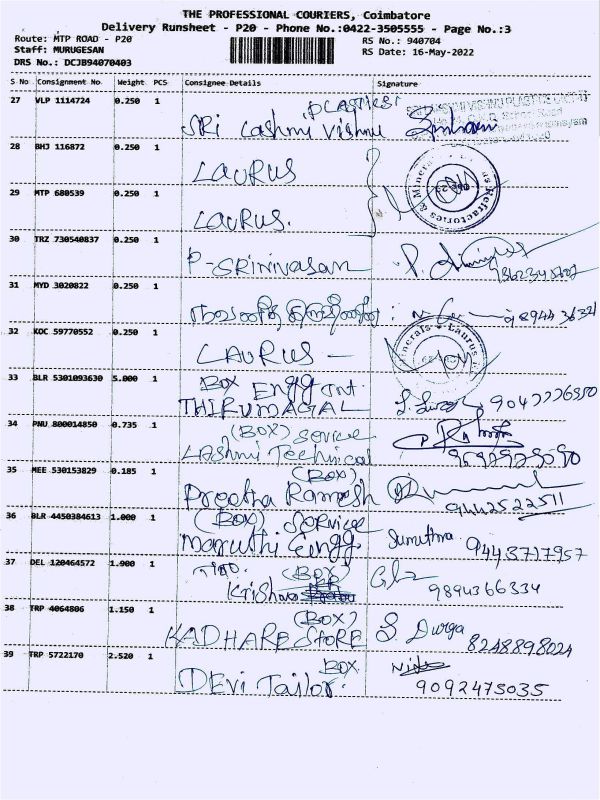 THE PROFESSIONAL COURIERS, Coimbatore
Delivery Runsheet - P20 - Phone No.:0422-3505555 - Page No.:3
Route: MTP ROAD - P20
RS No.: 940704
Staff: MURUGESAN
RS Date: 16-May-2022
DRS No.: DCJB94070403
S No Consignment No Weight PCS Consignee Details Signature
27 VLP 1114724 0.250 1
PLASTICS
SRI Lashmi Vishnu
28 BHJ 116872 0.250 1
LAURUS
29 MTP 680539 0.250 1
LAURUS.
Minerals Refractories &
30 TRZ 730540837 0.250 1
P-SRINIVASAN
31 MYD 3020822 0.250 1
32 KOC 59770552 0.250 1
LAURUS -
Minerals Laurus
33 BLR 5301093630 5.000 1
BOX Engg Ent.
THIRUMAGAL
34 PNU 800014850 0.735 1
(BOX) Service
Lashmi Technical
35 MEE 530153829 0.185 1
(BOX)
Preetha Ramesh
9442522511
36 BLR 4450384613 1.000 1
(BOX) Service
Maruthi Engg
Sumithra 9443717957
37 DEL 120464572 1.900 1
(BOX)
Krishna
9894366334
38 TRP 4064806 1.150 1
(BOX)
KADHARE STORE
S. Durga
8248898024
39 TRP 5722170 2.520 1
BOX
DEVi Tailor.
9092475035